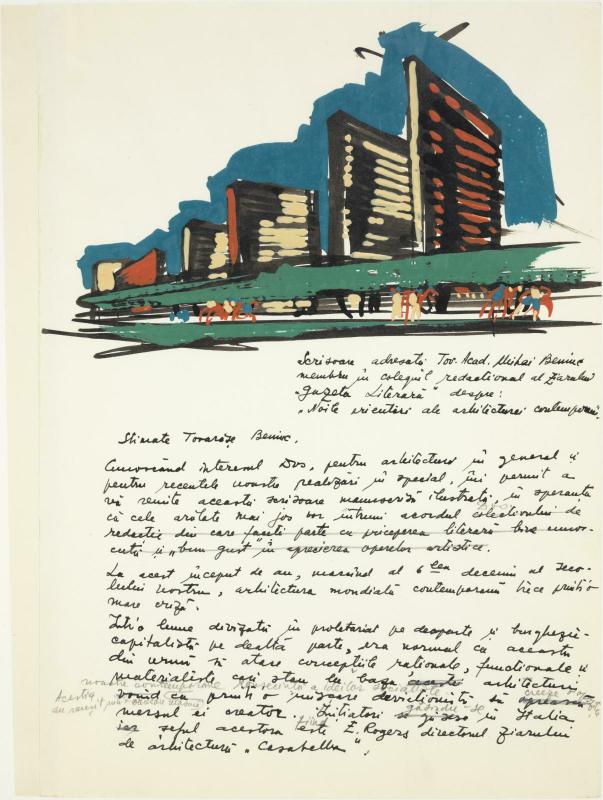 Scrisoare adresată Tov. Acad. Mihai Beniuc
membru în colegiul redacțional al ziarului
"Gazeta Literară" despre:
"Noile orientări ale arhitecturei contemporane.
Stimate Tovarășe Beniuc,
Cunoscând interesul Dvs. pentru arhitectură în general și
pentru recentele noastre realizări în special, îmi permit a
vă remite această scrisoare manuscrisă ilustrată, în speranța
că cele arătate mai jos vor întruni acordul colectivului de
redacție din care faceți parte cu priceperea literară bine cunos-
cută și "bun gust" în aprecierea operelor artistice.
La acest început de an, marcând al 6 lea deceniu al seco-
lului nostru, arhitectura mondială contemporană trece printr'o
mare criză.
Într'o lume divizată în proletariat pe deoparte și burghezie-
capitalistă pe dealtă parte, era normal ca aceasta
din urmă să atace concepțiile raționale, funcționale și
materialiste cari stau la baza arhitecturii
noastre contemporane
Aceștia
printr'o mișcare deviționistă să
mersul ei creator. Inițiatori în Italia
șeful acestora fiind este E. Rogers directorul ziarului
de arhitectură "Casabella",